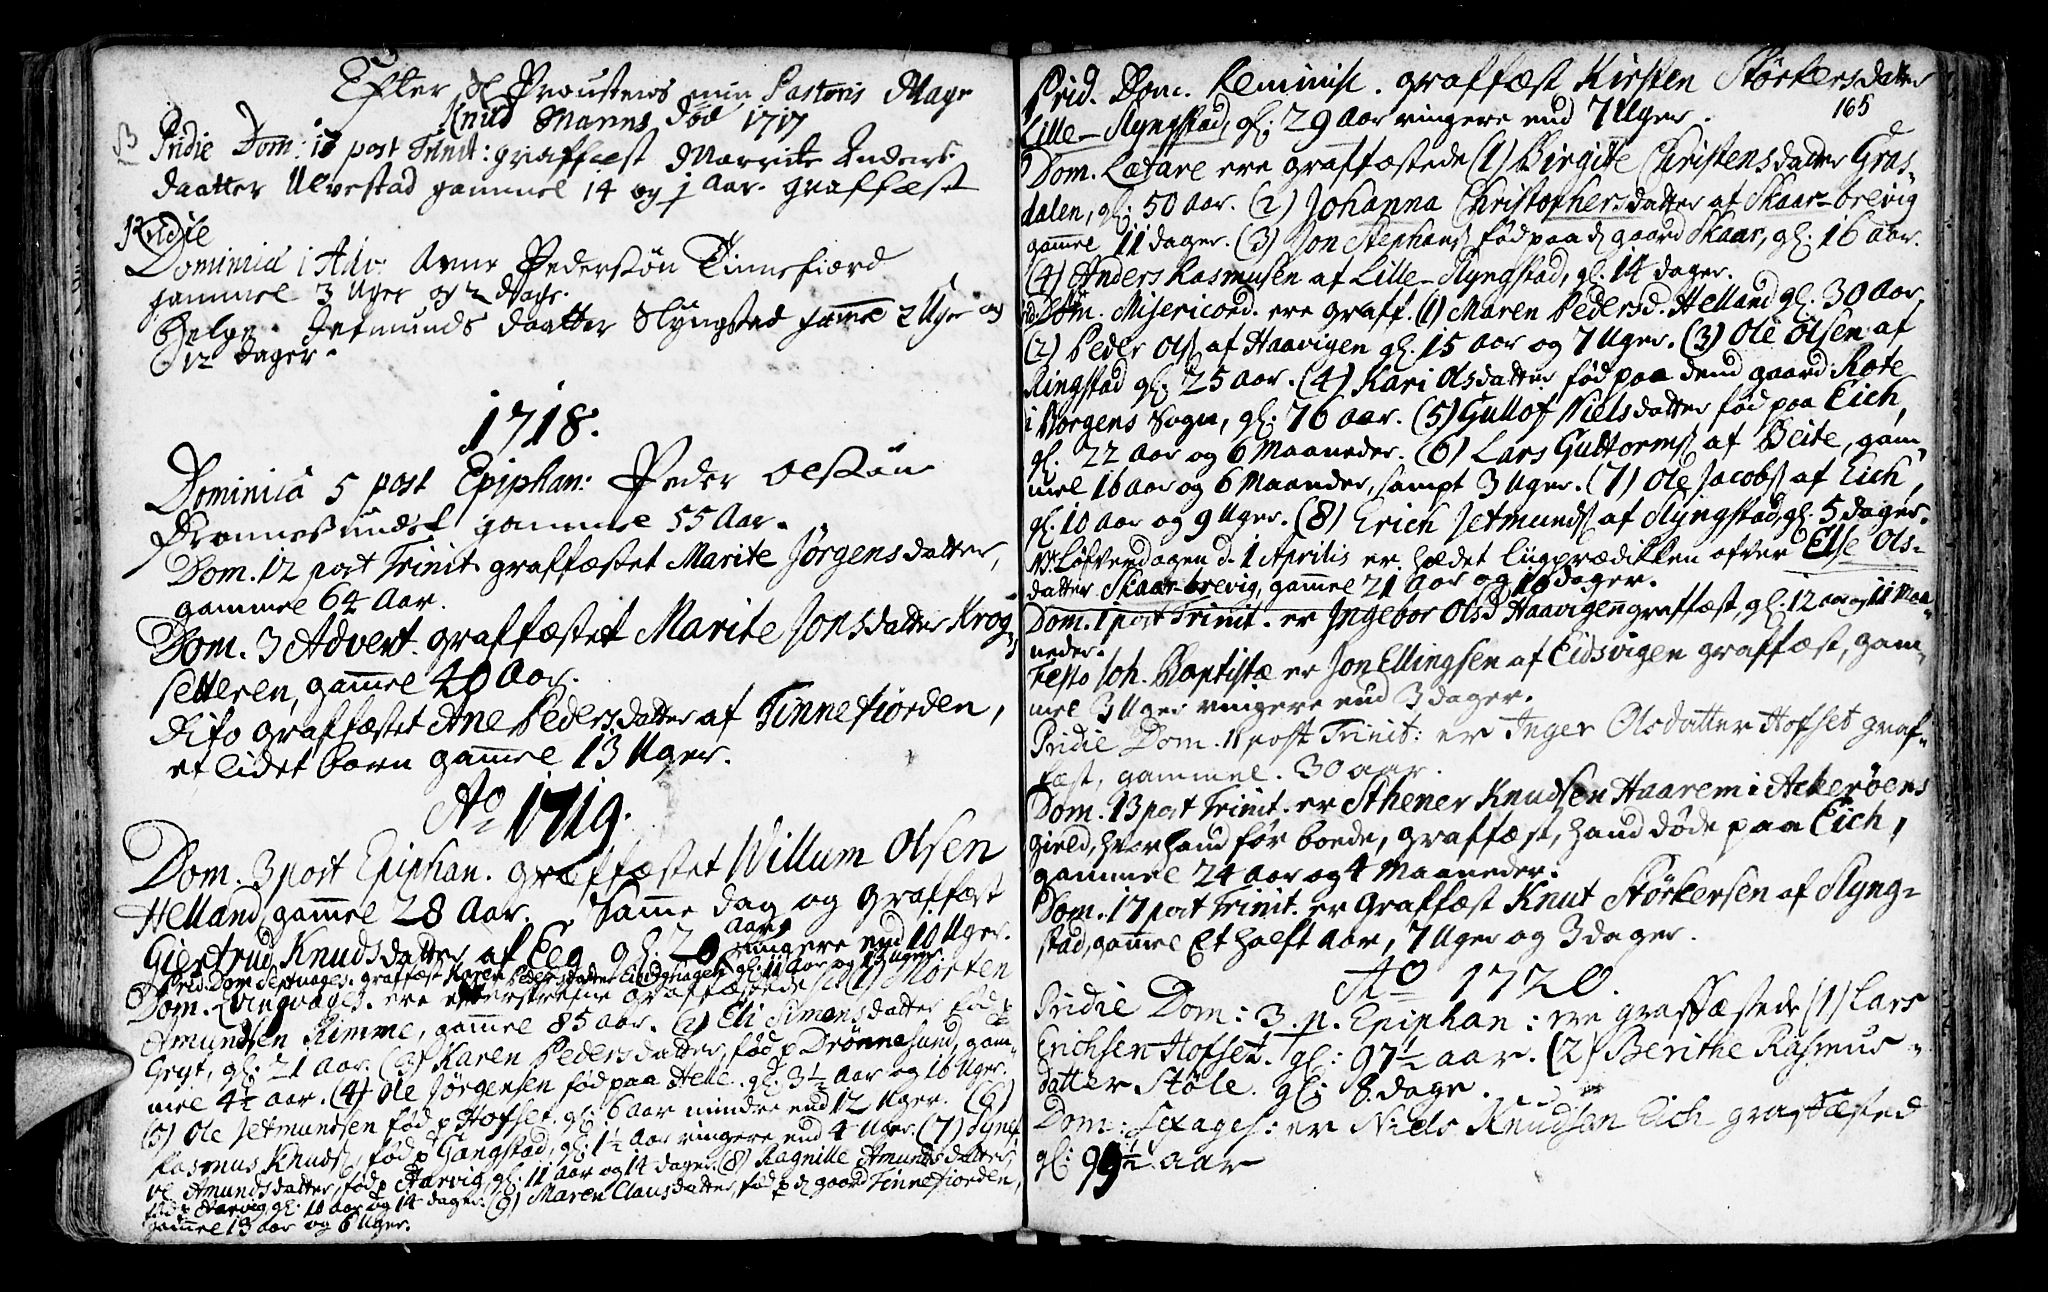 Efter Sl Proustens min Pastoris Mags
Knud Manns død 1717
Pridie Dom: 13 post Trinit: graffæst Marrite Anders
daatter Ulvestad gammel 14 og 1 Aar. graffæst
Pridie
Dominica 1 Adv: Arne Pederssøn Tinnefiord
gammel 3 Uger og 2 Dage.
Helge Jetmunds daatter Slyngstad gamel 2 Uger og
12 dager.
1718.
Dominica 5 post Epiphan: Peder Olssøn
Drønnessundet gammel 55 Aar.
Dom. 12 post Trinit. graffæstet Marite Jørgensdatter,
gammel 64 Aar.
Dom. 3 Advert. graffæstet Marite Jonsdatter Krog-
setteren, gamel 40 Aar.
Dito graffæstet Ane Pedersdatter af Tinnefiorden,
et lidet barn gamel 13 Uger.
Ao 1719.
Dom. 3 post Epiphan. graffæstet Willum Olsen
Helland gamel 28 Aar. Samme dag og graffæst
Giertrud Knudsdatter af Eeg gl: 20 Aar ringere end 10 Uger.
Prid. Dom Septuages. graffæst Karen Pedersdatter gl: 11 Aar og 13 Uger.
Dom. Qvinqvages. ere efterskrefne graffæstede (1) Morten
Amundsen Rimme, gamel 85 aar. (2) Eli Simensdatter fød p
gl: 21 Aar. (3) Karen Pedersdatter, fød p Drønnesund, gam-
mel 4½ aar. (4) Ole Jørgensen fød paa Helle. gl: 3½ Aar og 16 Uger.
(5) Ole Jetmundsen fød p Hofset. gl: 6 aar mindre end 12 Uger. (6)
Rasmus Knuds, fød p Gangstad, gl: 1½ Aar ringere end 4 Uger. (7) Syne-
ve Amundsdatter, fød p Aarvig gl: 11 aar og 14 dager. (8) Ragnille Amundsdatter,
fød p Aarvig, gl: 10 aar og 14 dager. (9) Maren Clausdatter, fød p d gaard Tinnefiorden,
gamel 13 aar og 6 Uger.
Prid. Dom. Reminisc. graffæst Kirsten Størkersdatter
165
Lille-Slyngstad, gl: 29 Aar ringere end 7 Uger.
Dom. Lætare ere graffæstede (1) Birgitte Christensdatter Gras-
dalen, gl: 50 Aar. (2) Johanna Christophersdatter af Skaar-brevig
gamel 11 dager. (3) Jon Stephans fød paa d gaard Skaar, gl: 16 aar.
(4) Anders Rasmusen af Lille-Slyngstad, gl: 14 dager.
Dom. Misericord. ere graff. (1) Maren Pedersd. Helland gl: 30 Aar,
(2) Peder Ols af Haavigen gl. 15 aar og 7 Uger. (3) Ole Olsen af
Ringstad gl: 25 Aar. (4) Kari Olsdatter fød paa dend gaard Rote
i Norgens Sogn, gl: 76 aar. (5) Gullof Nielsdatter fød paa Eich,
gl: 22 aar og 6 Maaneder. (6) Lars Guttorms af Beite, gam-
mel 16 aar og 6 Maaneder, sampt 3 Uger. (7) Ole Jacobs af Eich,
gl: 10 aar og 9 Uger. (8) Erich Jetmunds af Slyngstad, gl: 5 dager.
Løfverdagen d. 1 Aprilis er holdet Liigprædikken ofver Else Ols-
datter Skaar-brevig, gamel 21 aar og 10 dager.
Dom. 1 post Trinit. er Ingebor Olsd Haavigen graffæst, gl: 12 aar og 11 Maa-
neder.
Festo Joh. Baptistæ er Jon Ellingsen af Eidsvigen graffæst, gam-
mel 3 Uger ringere end 3 dager.
Pridie Dom. 11 post Trinit: er Inger Olsdatter Hofset graf-
fæst, gammel. 30 aar.
Dom. 13 post Trinit. er Sthener Knudsen Haarem i Ackerøens
gield, hvor hand før boede, graffæst, hand døde paa Eich,
gammel 24 aar og 4 Maaneder.
Dom. 17 post Trinit. er graffæst Knut Størkersen af Slyng-
stad, gamel Et halft Aar, 7 Uger og 3 dager.
Ao 1720.
Pridie Dom: 3. p. Epiphan: ere graffæstede (1) Lars
Erichsen Hofset. gl: 97½ aar. (2) Berithe Rasmus-
datter Støle. gl: 8 dage.
Dom: Sexages: er Niels Knudsøn Eich graffæsted
gl: 99½ aar